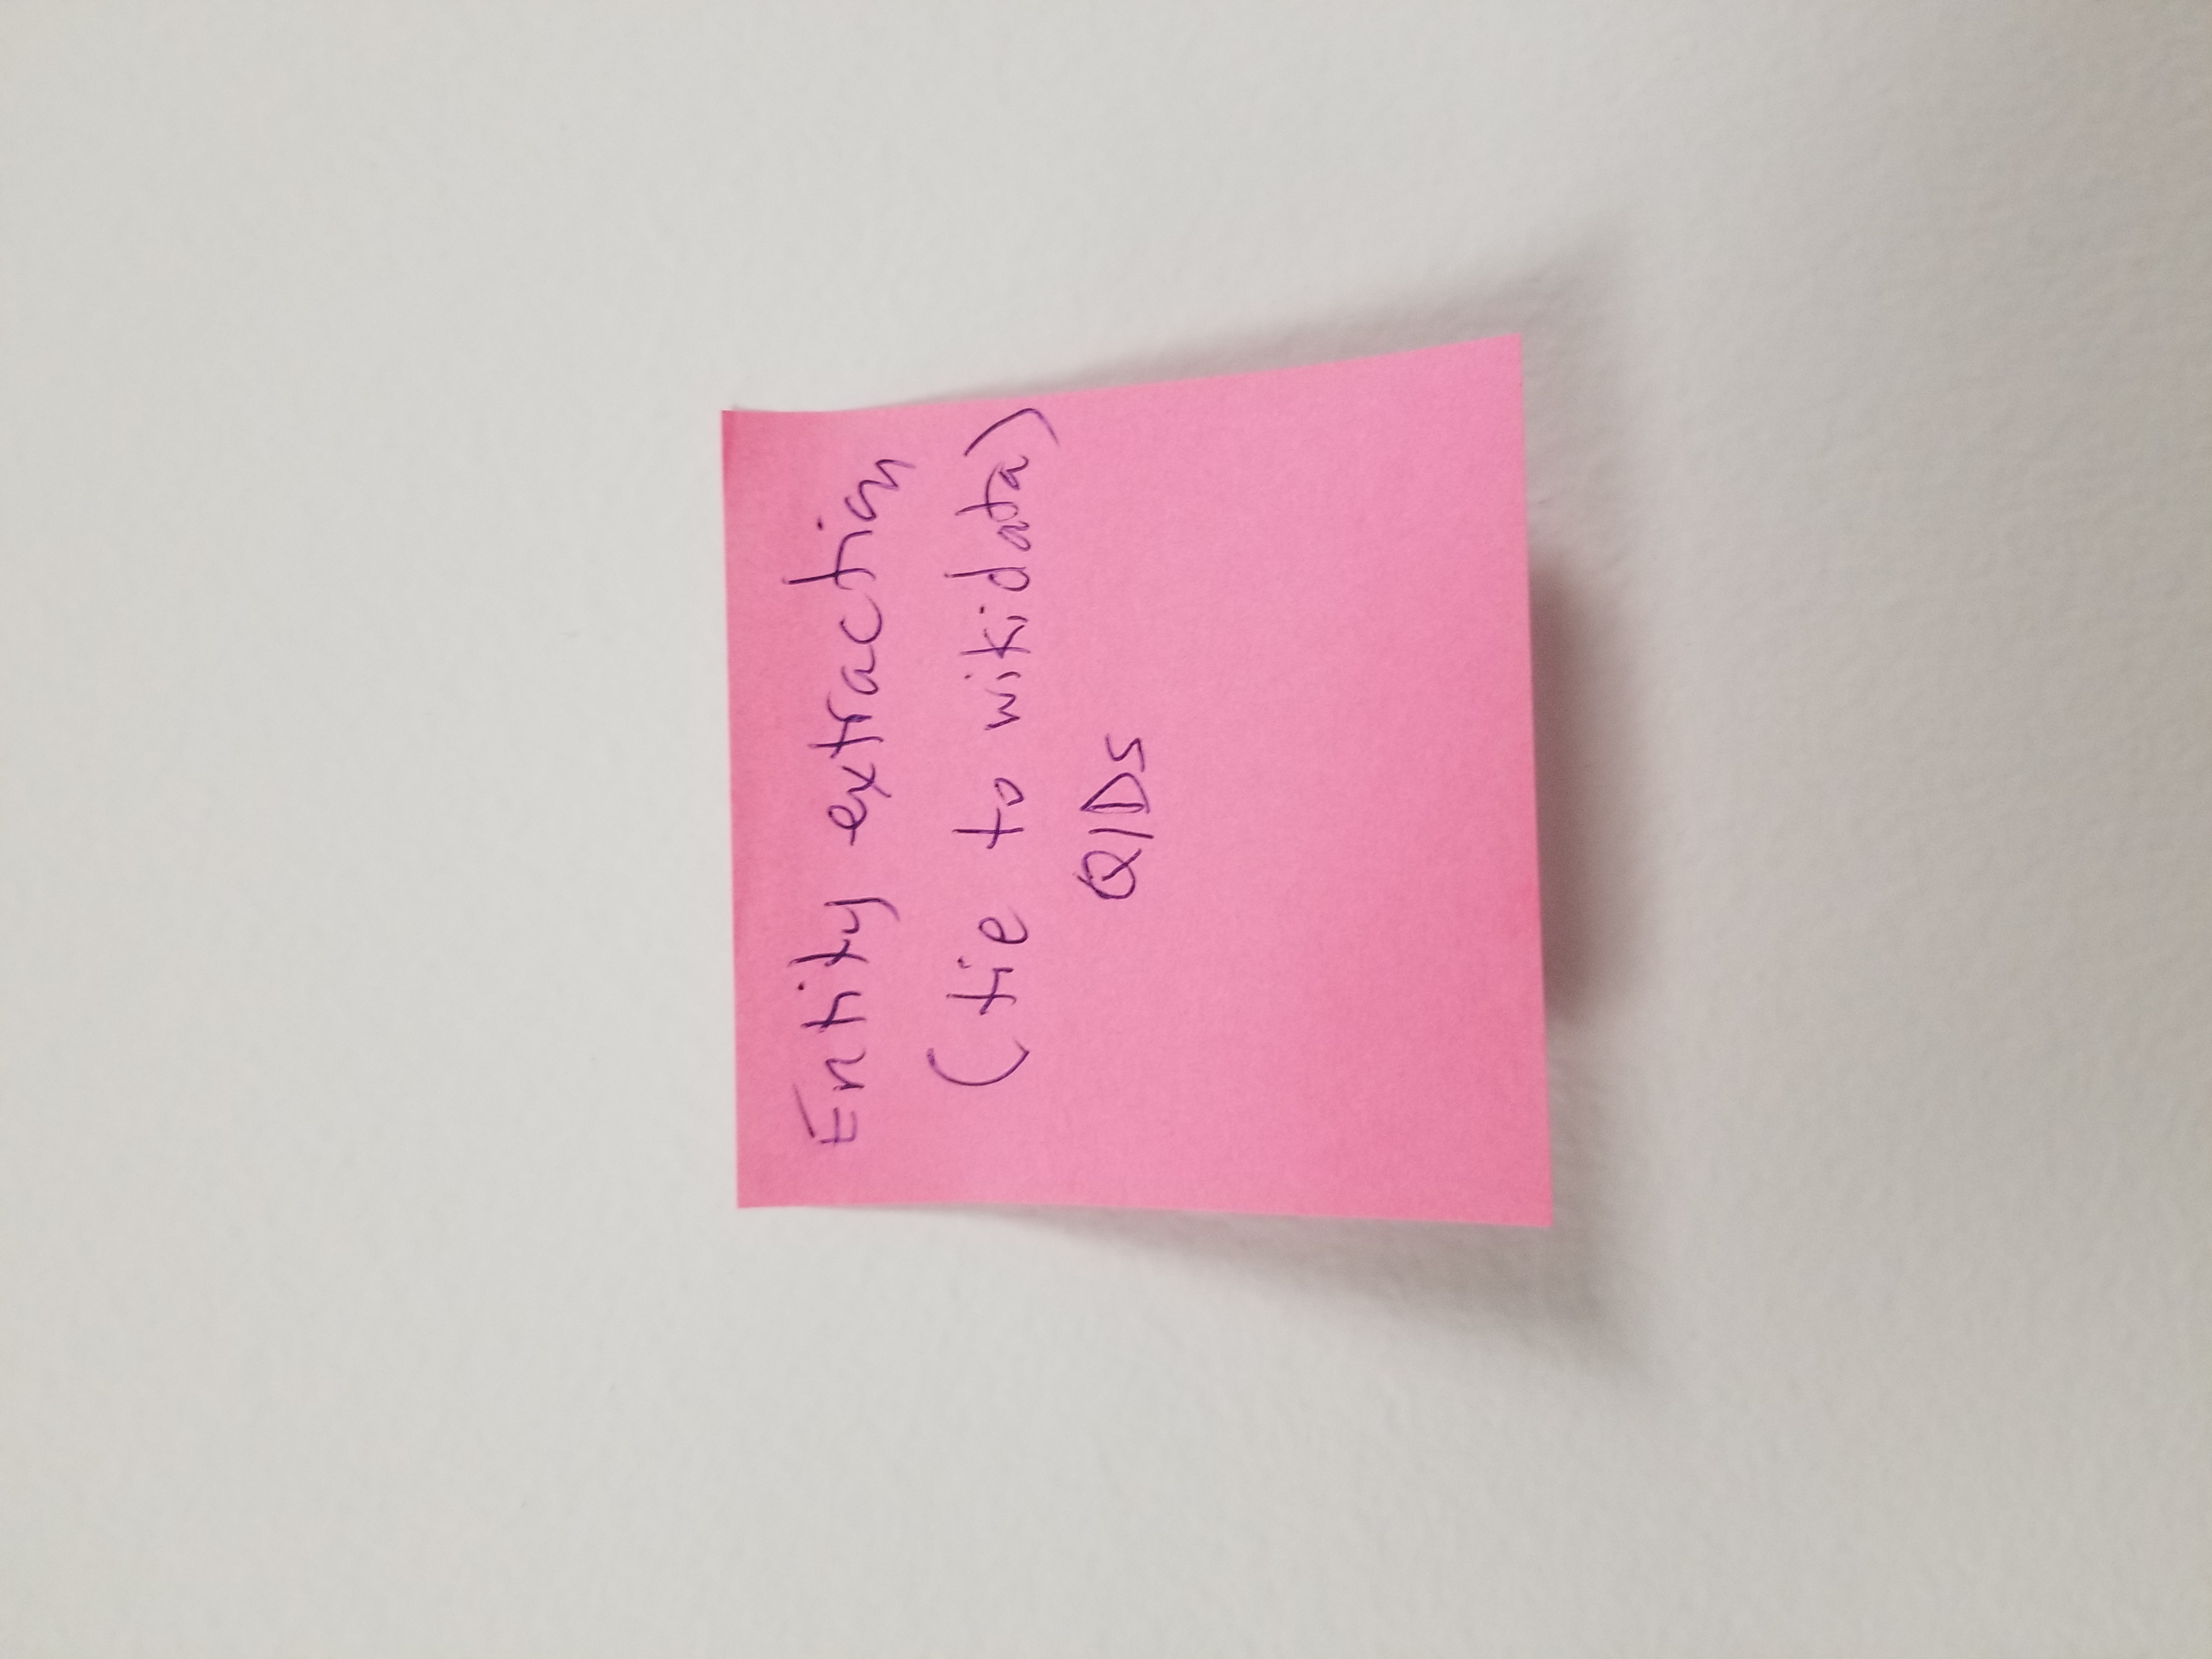 Entity extraction
(tie to wikidata)
QIDs